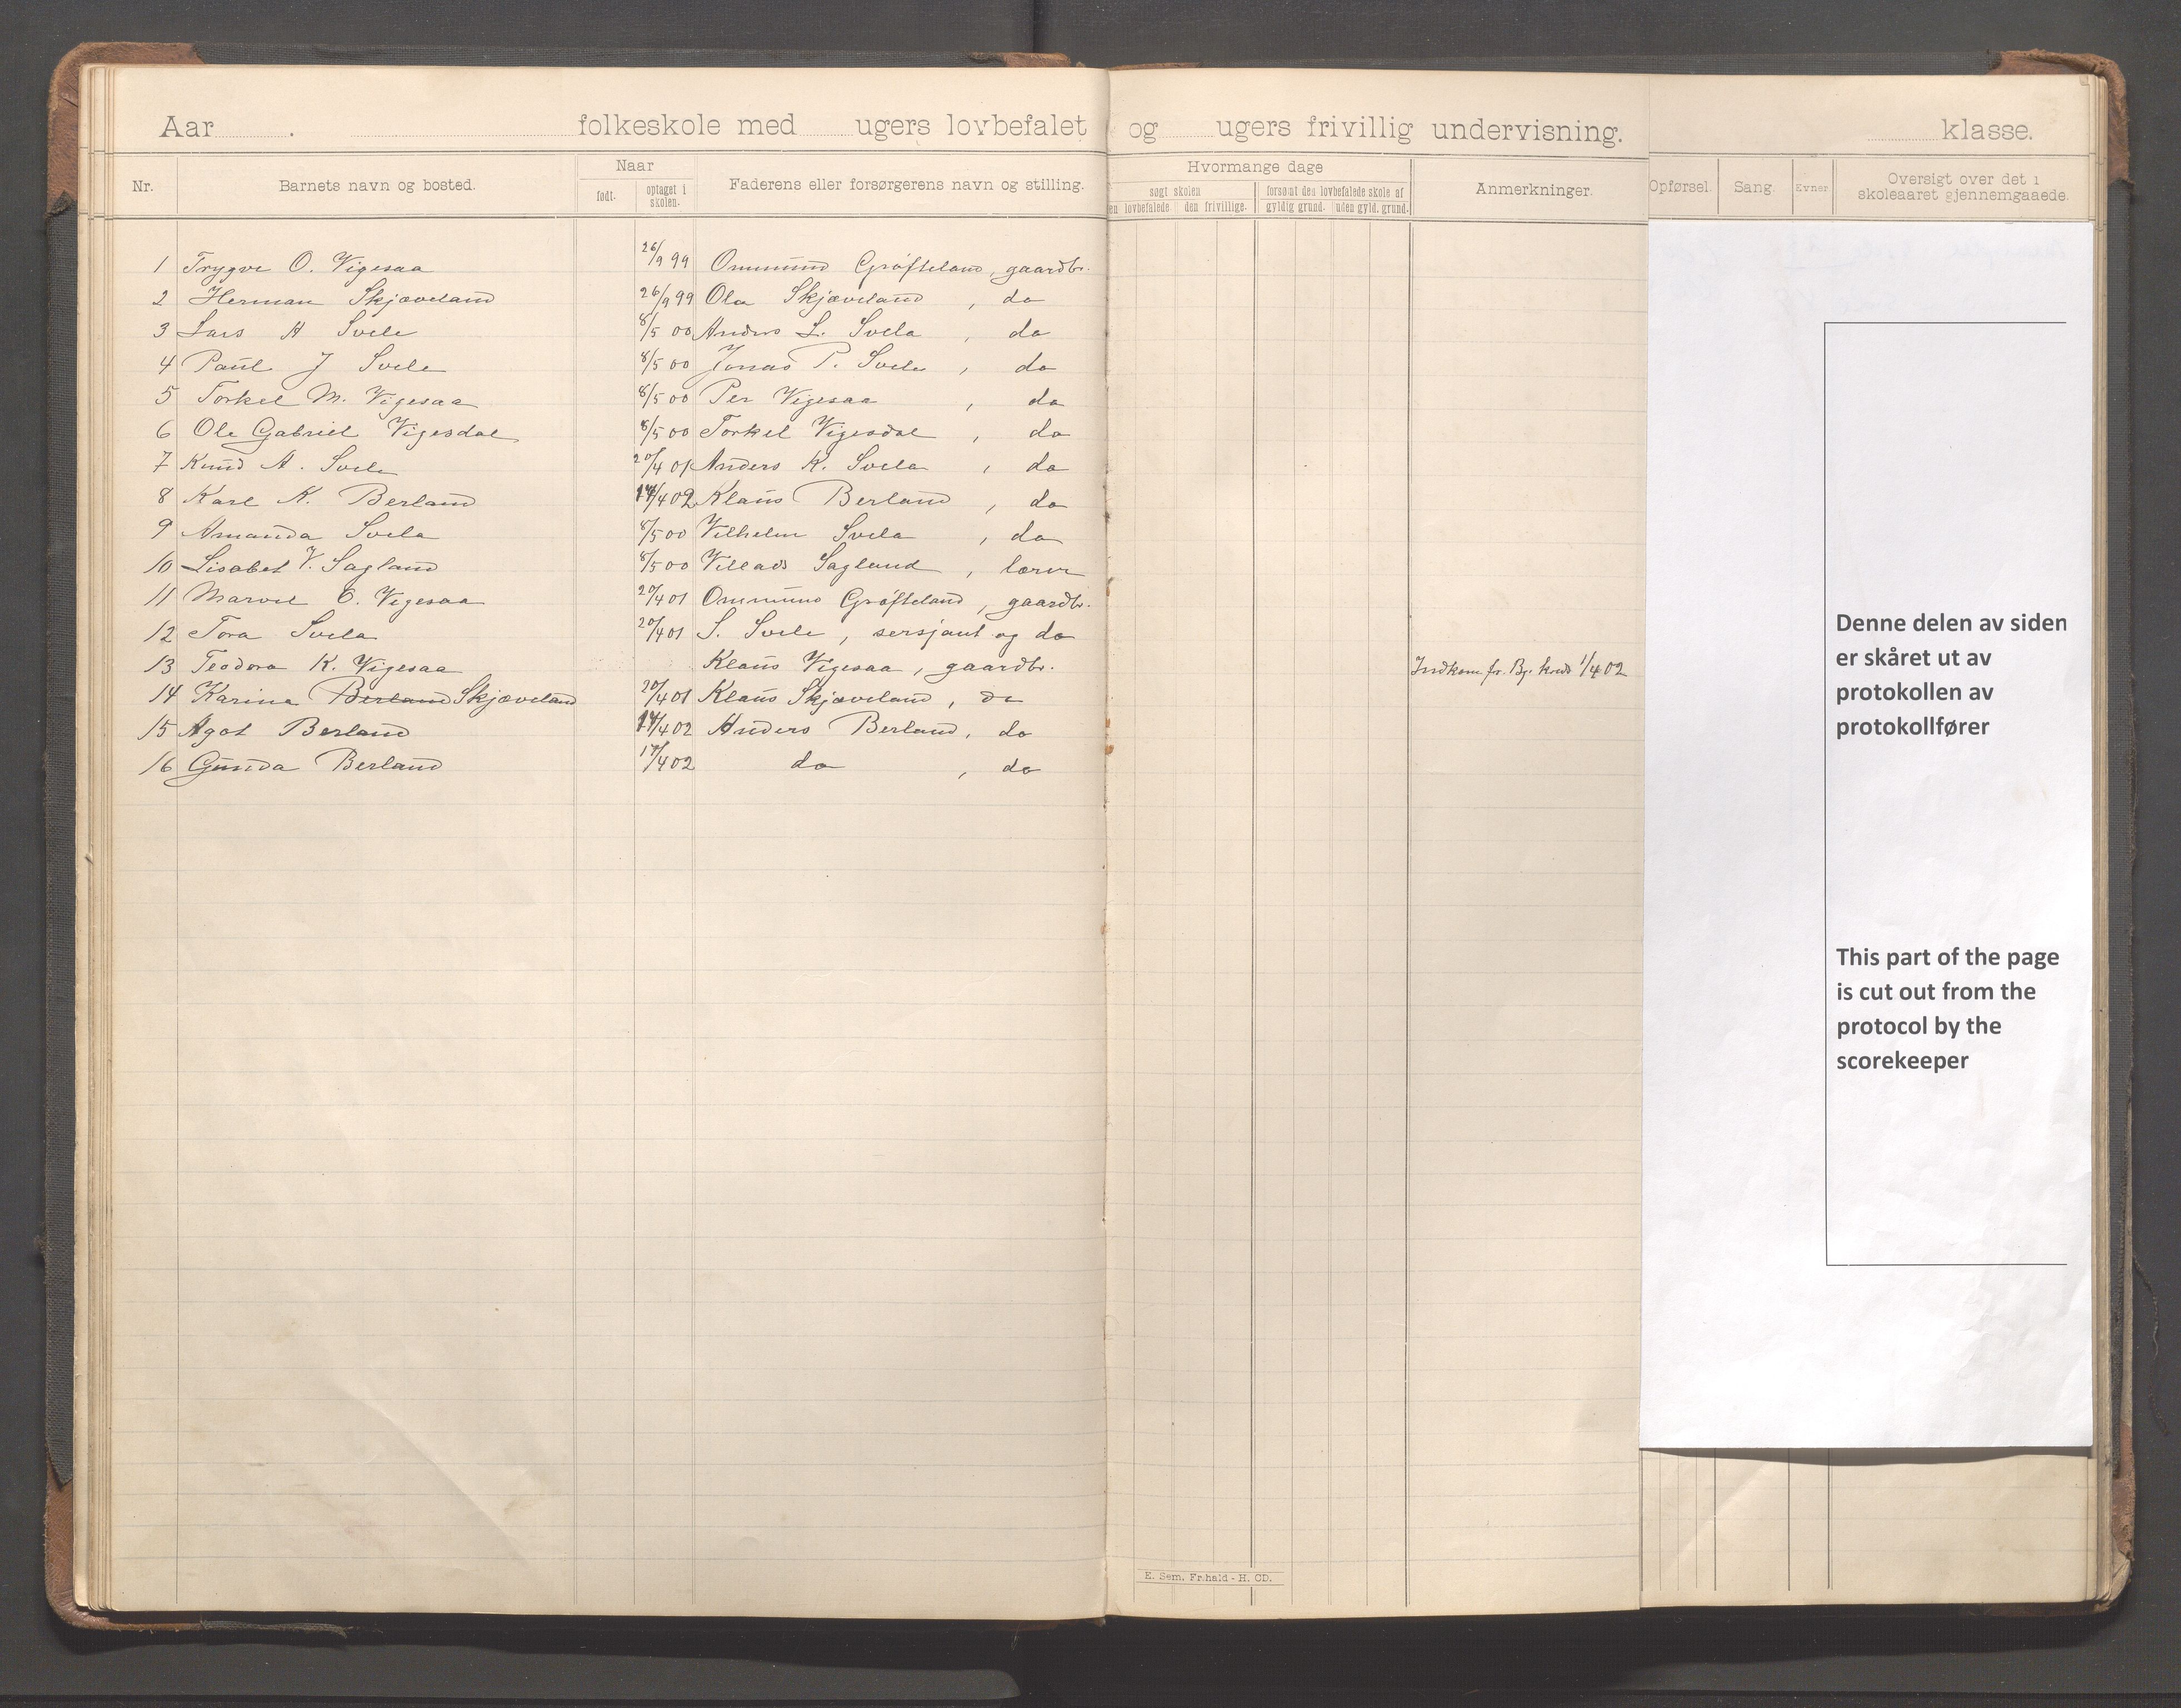 Aar . folkeskole med ugers lovbefalet og ugers frivillig undervisning. klasse.
Nr. Barnets navn og bosted. Naar født. optaget i skolen. Faderens eller forsørgerens navn og stilling. Hvormange dage søgt skolen lovbefalede den frivillige. forsømt den lovbefalede skole af gyldig grund. uden gyld. grund. Anmerkninger. Opførsel. Sang. Evner Oversigt over det i skoleaaret gjennemgaaede.
1 Trygve O. Vigesaa 26/9 99 Ommund Grøfteland, gaardbr.
2 Herman Skjæveland 26/9 99 Ola Skjæveland, do
3 Lars A Svela 8/5 00 Anders L. Svela, do
4 Paul J Svela 8/5 00 Jonas P. Svela, do
5 Torkel M. Vigesaa 8/5 00 Per Vigesaa, do
6 Ole Gabriel Vigesdal 8/5 00 Torkel Vigesdal, do
7 Knud A. Svela 20/4 01 Anders K. Svela, do
8 Karl K. Berland 14/4 02 Klaus Berland, do
9 Amanda Svela 8/5 00 Vilhelm Svela, do
10 Lisabet V. Sagland 8/5 00 Villads Sagland, lærer
11 O. Vigesaa 20/4 01 Ommund Grøfteland, gaardbr.
12 Tora Svela 20/4 01 S. Svela, sersjant og do
13 Teodora K. Vigesaa Klaus Vigesaa, gaardbr. Indkom fr. By. kreds 1/4 02
14 Karina Berland Skjæveland 20/4 01 Klaus Skjæveland, do
15 Agot Berland 14/4 02 Anders Berland, do
16 Gunda Berland 14/4 02 do, do
Denne delen av siden
er skåret ut av
protokollen av
protokollfører
This part of the page
is cut out from the
protocol by the
scorekeeper
E. Sem, Fr.hald - H. CD.